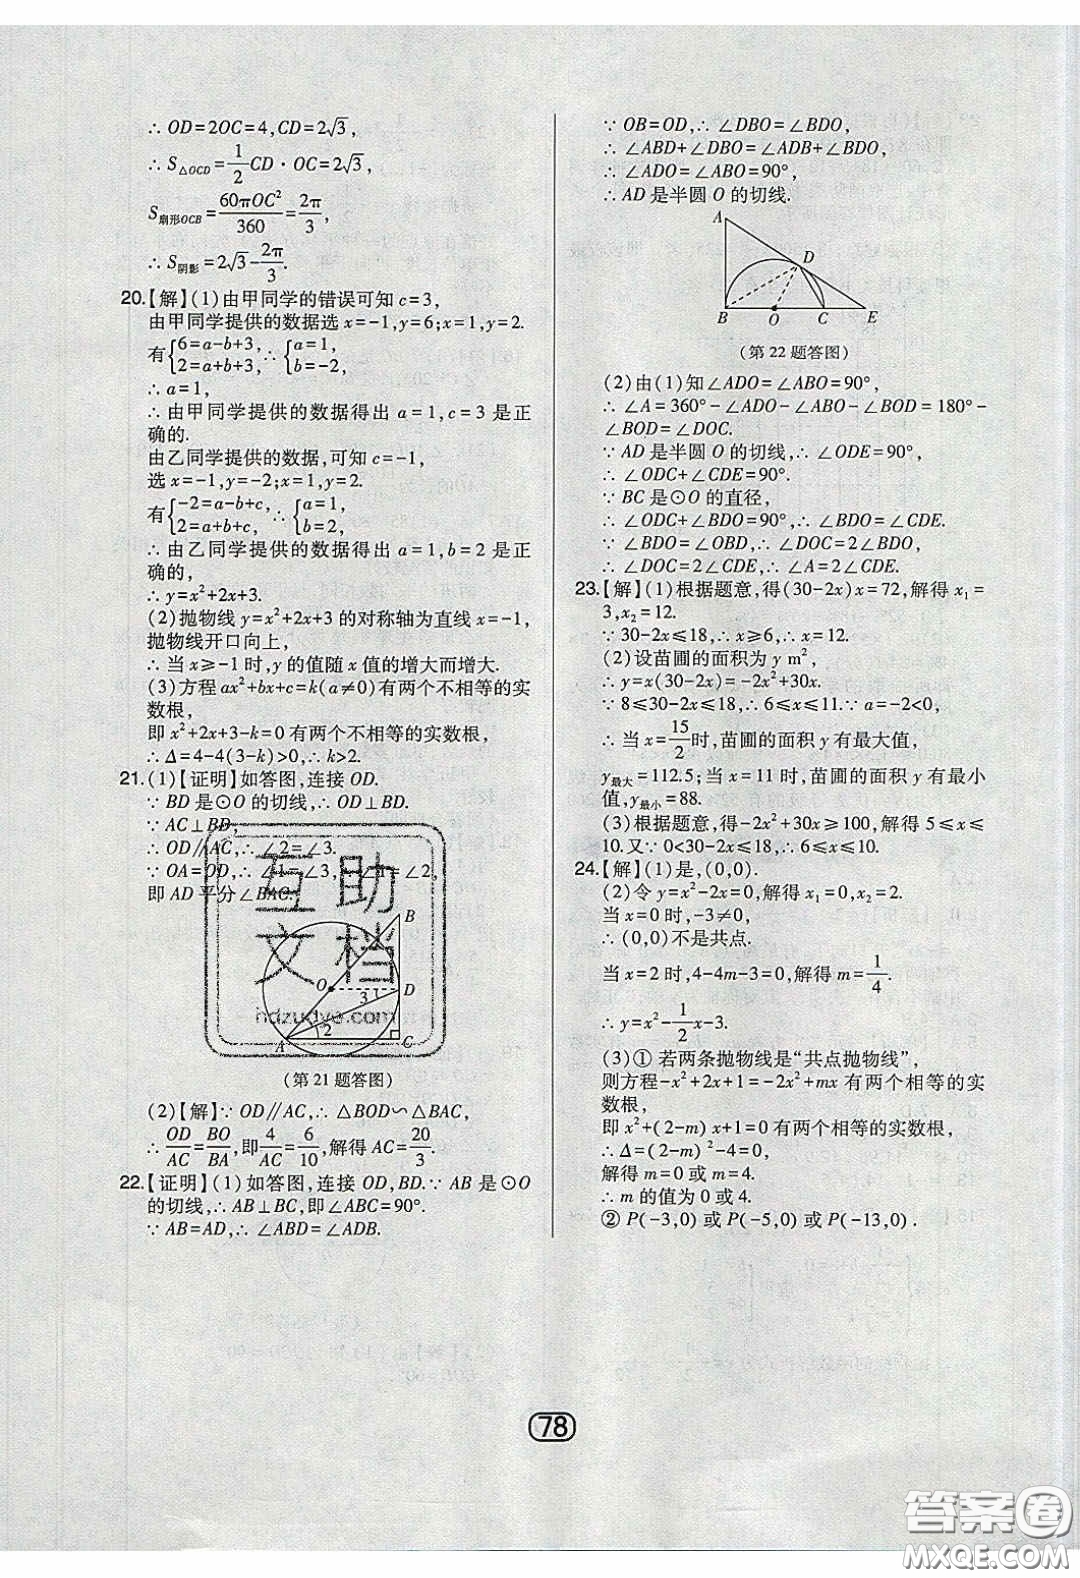 ∴ OD=2OC=4,CD=2√3,
∴ S△OCD=1/2 CD·OC=2√3,
S扇形OCB=60πOC²/360=2π/3,
∴ S阴影=2√3-2π/3.
20.【解】(1)由甲同学的错误可知 c=3,
由甲同学提供的数据选 x=-1,y=6;x=1,y=2.
有{6=a-b+3, 2=a+b+3,∴{a=1, b=-2,
∴ a=1,
∴ 由甲同学提供的数据得出 a=1,c=3 是正
确的.
由乙同学提供的数据,可知 c=-1,
选 x=-1,y=-2;x=1,y=2.
有{-2=a-b+c, 2=a+b+c,∴{a=1, b=2.
∴ 由乙同学提供的数据得出 a=1,b=2 是正
确的,
∴ y=x²+2x+3.
(2)抛物线 y=x²+2x+3 的对称轴为直线 x=-1,
抛物线开口向上,
∴ 当 x≥-1 时,y 的值随 x 值的增大而增大.
(3)方程 ax²+bx+c=k(a≠0)有两个不相等的实
数根,
即 x²+2x+3-k=0 有两个不相等的实数根,
∴ Δ=4-4(3-k)>0,∴ k>2.
21.(1)【证明】如答图,连接 OD.
∵ BD 是⊙O 的切线,∴ OD⊥BD.
∵ AC⊥BD,
∴ OD∥AC,∴ ∠2=∠3.
∵ OA=OD,∴ ∠1=∠3,∴ ∠1=∠2,
即 AD 平分∠BAC.
互助
文档
B
O
D
3
1
2
A
C
(第 21 题答图)
(2)【解】∵ OD∥AC,∴ △BOD∽△BAC,
∴ OD/AC=BO/BA,即 4/AC=6/10,解得 AC=20/3.
22.【证明】(1)如答图,连接 OD,BD.∵ AB 是⊙O
的切线,∴ AB⊥BC,即∠ABC=90°.
∵ AB=AD,∴ ∠ABD=∠ADB.
∵ OB=OD,∴ ∠DBO=∠BDO,
∴ ∠ABD+∠DBO=∠ADB+∠BDO,
∴ ∠ADO=∠ABO=90°,
∴ AD 是半圆 O 的切线.
A
D
B O C E
(第 22 题答图)
(2)由(1)知∠ADO=∠ABO=90°,
∴ ∠A=360°-∠ADO-∠ABO-∠BOD=180°-
∠BOD=∠DOC.
∵ AD 是半圆 O 的切线,∴ ∠ODE=90°,
∴ ∠ODC+∠CDE=90°.
∵ BC 是⊙O 的直径,
∴ ∠ODC+∠BDO=90°,∴ ∠BDO=∠CDE.
∵ ∠BDO=∠OBD,∴ ∠DOC=2∠BDO,
∴ ∠DOC=2∠CDE,∴ ∠A=2∠CDE.
23.【解】(1)根据题意,得(30-2x)x=72,解得 x₁=
3,x₂=12.
∵ 30-2x≤18,∴ x≥6,∴ x=12.
(2)设苗圃的面积为 y m²,
∴ y=x(30-2x)=-2x²+30x.
∵ 8≤30-2x≤18,∴ 6≤x≤11.∵ a=-2<0,
∴ 当 x=15/2时,苗圃的面积 y 有最大值,
y最大=112.5;当 x=11 时,苗圃的面积 y 有最小
值,y最小=88.
(3)根据题意,得-2x²+30x≥100,解得 5≤x≤
10.又∵ 0<30-2x≤18,∴ 6≤x≤10.
24.【解】(1)是,(0,0).
(2)令 y=x²-2x=0,解得 x₁=0,x₂=2.
当 x=0 时,-3≠0,
∴ (0,0)不是共点.
当 x=2 时,4-4m-3=0,解得 m=1/4.
∴ y=x²-1/2x-3.
(3)① 若两条抛物线是“共点抛物线”,
则方程-x²+2x+1=-2x²+mx 有两个相等的实
数根,
即 x²+(2-m)x+1=0 有两个相等的实数根,
∴ Δ=(2-m)²-4=0,
解得 m=0 或 m=4.
∴ m 的值为 0 或 4.
② P(-3,0) 或 P(-5,0) 或 P(-13,0).
78
答案圈
MXQE.COM